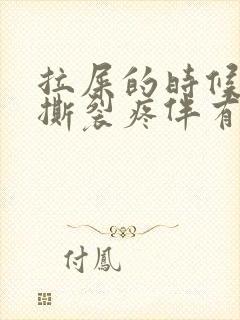 拉屎的时候
撕裂疼伴有
付鳳